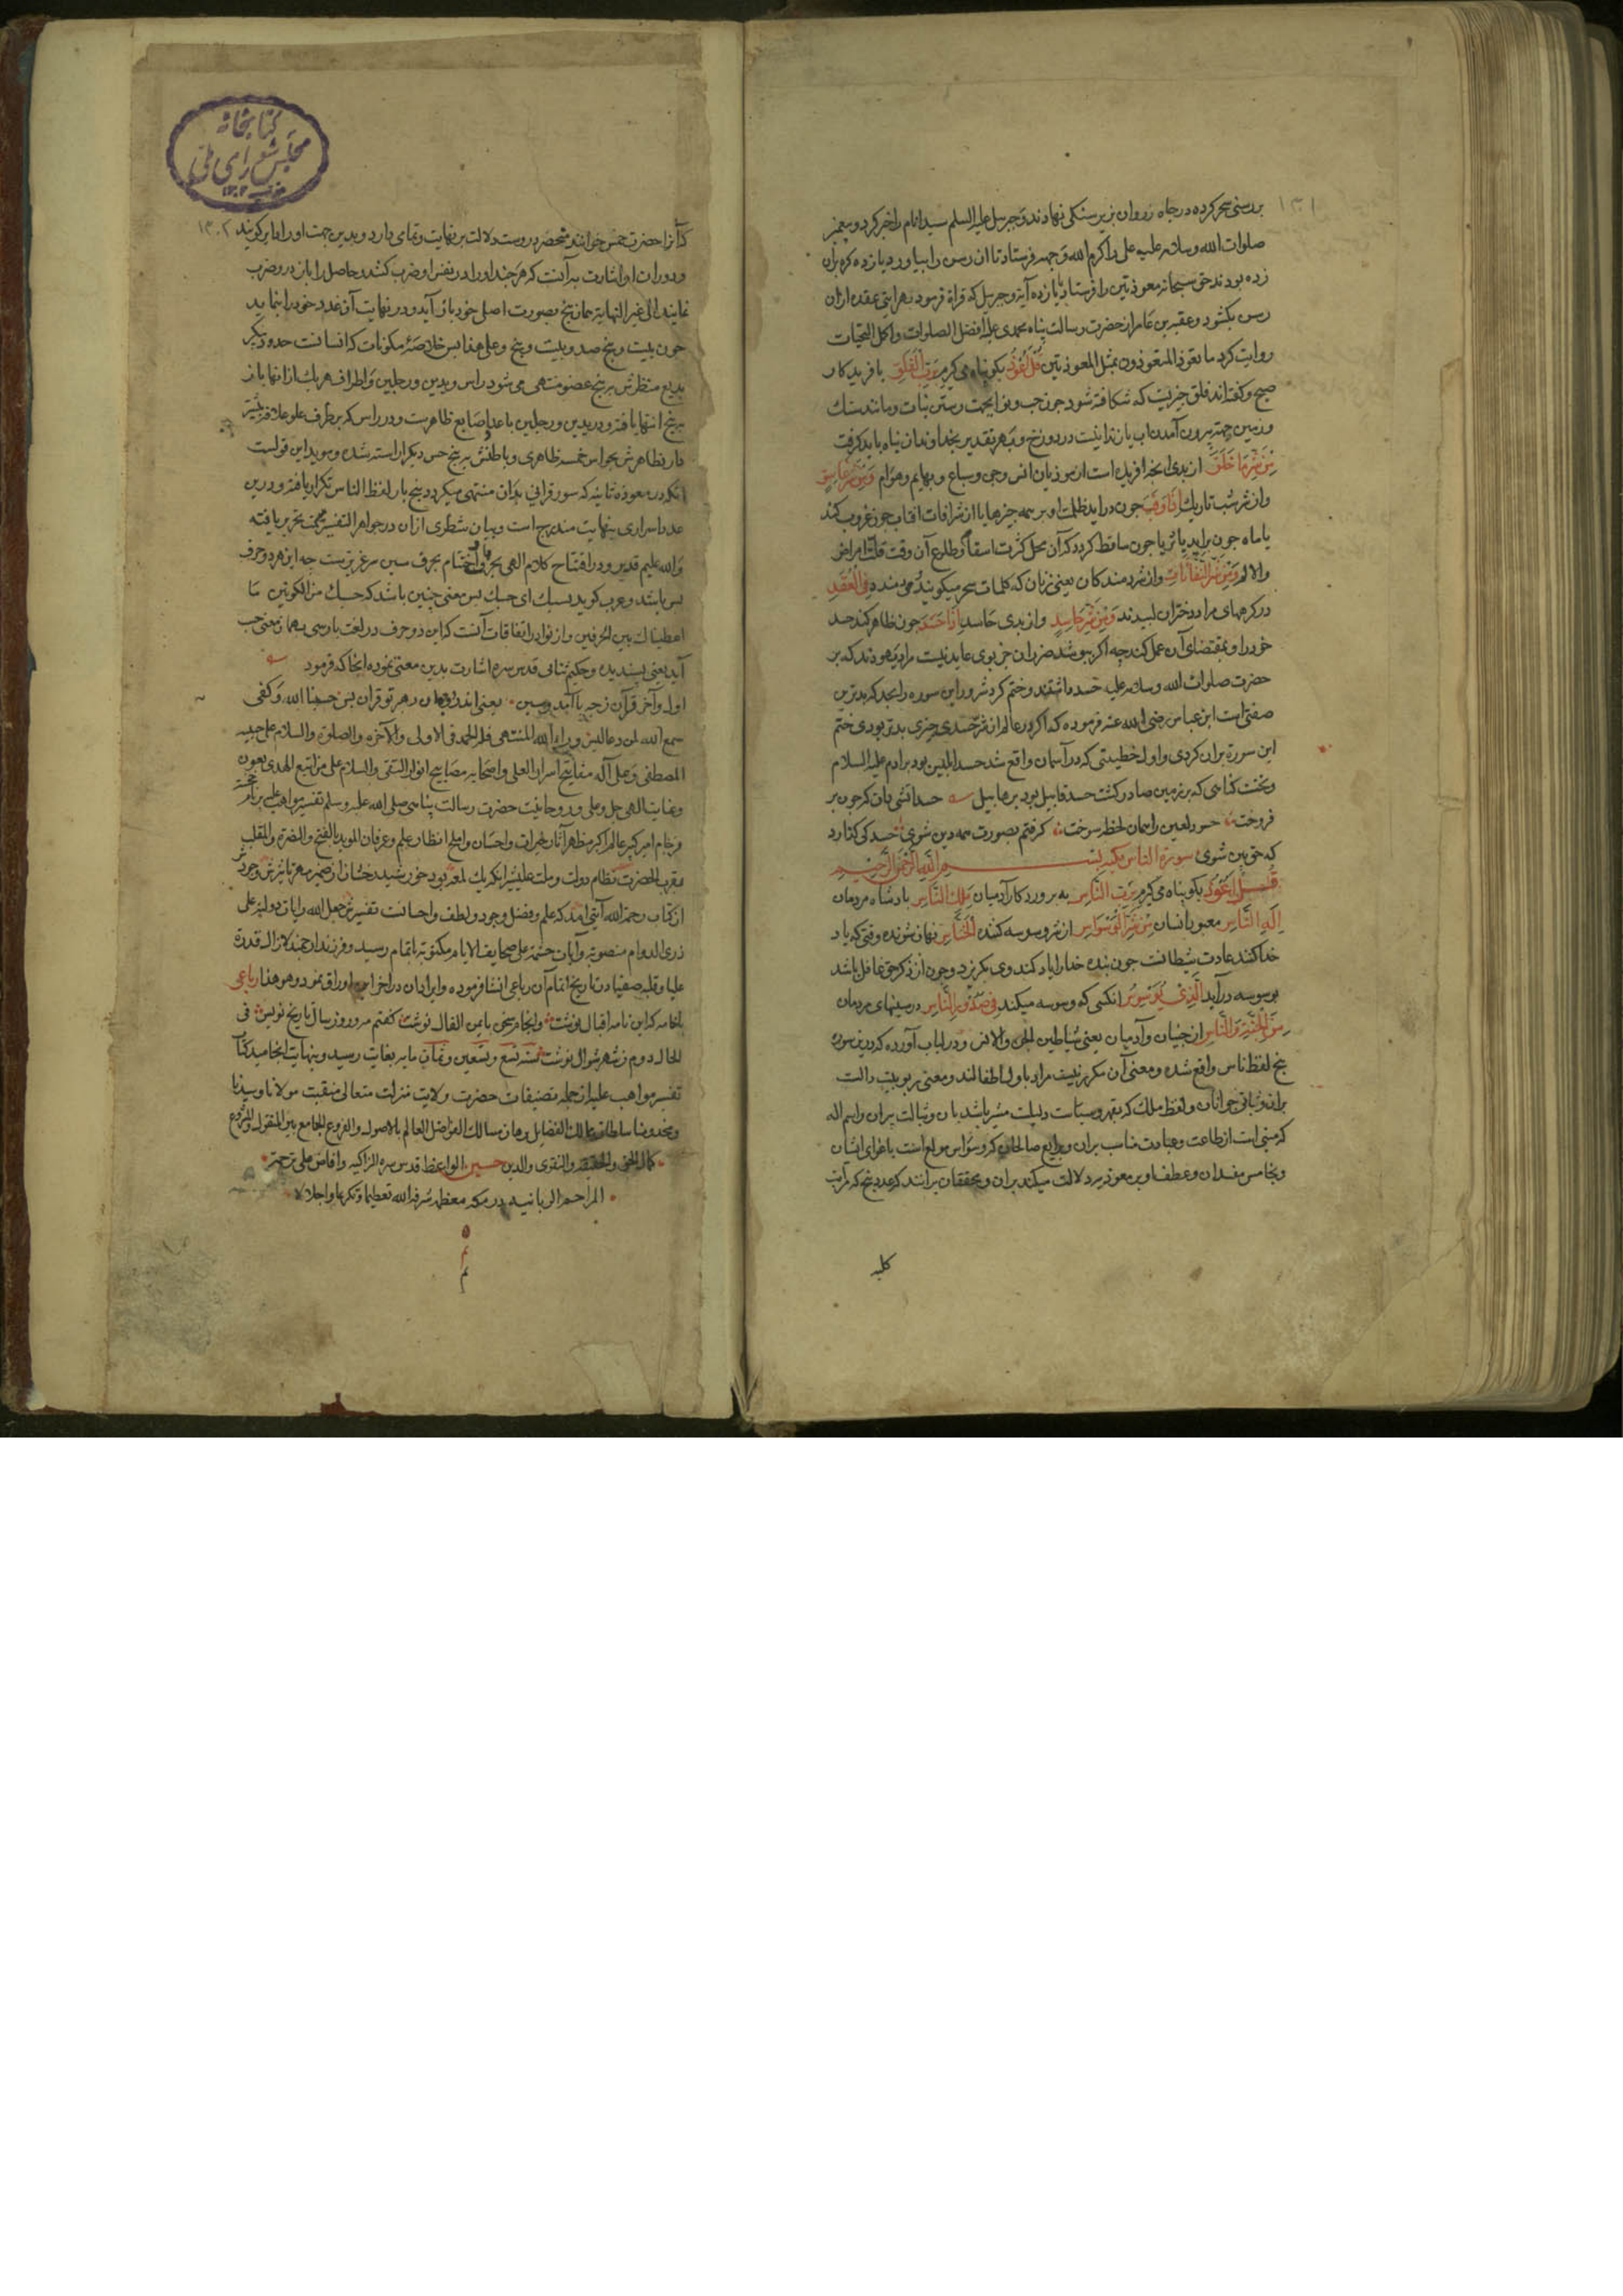 بر رسنی سحر کرده در چاه زروان زیر سنکی نهادند و جبرییل علیه السلم سید انام را خبر کرد و پیغمبر
صلوات الله و سلامه علیه علی را کرم الله وجهه فرستاد تا ان رسن را بیاورد یازده کره بران
زده بودند حق سبحانه معوذتین را فرستاد یازده آیه و جبریل که قراة فرمود بهر ایتی عقده ازان
رسن بکشود و عقبة بن عامر از حضرت رسالت پناه محمدی علیه افضل الصلوات و اکمل التحیات
روایت کرد ما تعوذ المتعوذون بمثل المعوذتین قُلْ أَعُوذُ بکو پناه می کیرم بِرَبِّ الْفَلَقِ بافریدکار
صبح و کفته اند فلق چیزیست که شکافته شود چون حب و نوا بجهت رستن نبات و مانند سنک
و زمین جهة بیرون آمدن اب یا زندانیست در دوزخ و بهر تقدیر بخداوند ان پناه باید کرفت
مِنْ شَرِّ مَا خَلَقَ از بدی انچه افریده است از موذیان انس و جن و سباع و بهایم و هوام وَمِنْ شَرِّ غَاسِقٍ
و از شر شب تاریک إِذَا وَقَبَ چون دراید ظلمت او بر همه چیزها یا از شر افتاب چون غروب کند
یا ماه چون براید یا ثریا چون ساقط کردد که آن محل کثرت اسقام و طلوع آن وقت قلت امراض
والالم وَمِنْ شَرِّ النَّفَّاثَاتِ و از شر دمندکان یعنی زنان که کلمات سحر میکویند و می دمند فِي الْعُقَدِ
در کرههای مراد دختران لبیدند وَمِنْ شَرِّ حَاسِدٍ و از بدی حاسد إِذَا حَسَدَ چون ظاهر کند حسد
خود را و بمقتضای آن عمل کند چه اکر بپوشد ضرر ان جز بوی عاید نیست مراد یهودند که بر
حضرت صلوات الله و سلامه علیه حسد داشتند و ختم کرد شرور این سوره را بحسد که بدترین
صفتی است ابن عباس رضی الله عنه فرموده که اکر در عالم از شر حسد چیزی بدتر بودی ختم
این سوره بران کردی و اول خطیئتی که در آسمان واقع شد حسد ابلیس بود بر ادم علیه السلام
و نخست کناهی که بر زمین صادر کشت حسد قابیل بود بر هابیل حسد آتشی دان که چون بر
فروخت حسود لعین را همان لحظه سوخت کرفتم بصورت همه دین شوی حسد کی کذارد
که حق بین شوی سورة الناس مکیه بسم الله الرحمن الرحیم
قُلْ أَعُوذُ بکو پناه می کیرم بِرَبِّ النَّاسِ به پروردکار آدمیان مَلِكِ النَّاسِ بادشاه مردمان
إِلَهِ النَّاسِ معبود انسان مِنْ شَرِّ الْوَسْوَاسِ از شر وسوسه کننده الْخَنَّاسِ نهان شونده وقتی که یاد
خدا کنند عادت شیطانست چون بنده خدا را یاد کند وی بکریزد و چون از ذکر حق غافل باشد
بوسوسه درآید الَّذِي يُوَسْوِسُ انکسی که وسوسه میکند فِي صُدُورِ النَّاسِ در سینهای مردمان
مِنَ الْجِنَّةِ وَالنَّاسِ از جنیان و آدمیان یعنی شیاطین الجن والانس و در لباب آورده که درین سوره
پنج لفظ ناس واقع شده و معنی آن مکرر نیست مراد باول اطفالند و معنی ربوبیت دالست
بران و ثانی جوانان و لفظ ملک که بقهر و سیاست مشیر باشد بان و ثالث پیران و اسم اله
که مبنی است از طاعت و عبادت مناسب بران و رابع صالحان که وسواس مولع است باغوای ایشان
و خامس مفسدان و عطف او بر معوذ بر دلالت میکند بران و محققان برانند که عدد پنج که مراتب
کلیه
کتابخانه
مجلس شورای ملی
۱۳۰۲
که آنرا حضرت خمس خوانند منحصر دروست دلالت بر نهایت و تمامی دارد و بدین جهت او را دایر کویند
و دوران او اشارت بدانست که هر چند او را در نفس او ضرب کنند و حاصل را باز درو ضرب
نمایند الی غیر النهایه همان پنج بصورت اصلی خود باز آید و در نهایت آن عدد خود را بنماید
چون بیست و پنج صد و بیست و پنج و علی هذا پس خلاصه مکونات که انسانست
بدیع منظرش بر پنج عضو منتهی می شود راس و یدین و رجلین و اطراف هر یک ازانها باز
بر پنج انتها یافته و در یدین و رجلین باعداد اصابع ظاهرست و در راس که بر طرف علو علاقه بیشتر
دارد ظاهرش بحواس خمسه ظاهری و باطنش بر پنج حس دیکر اراسته شده و موید این قولست
انکه در معوذه ثانیه که سور قرانی بدان منتهی میکردد پنج بار لفظ الناس تکرار یافته و درین
عدد اسراری بنهایت مندرج است و بیان شطری ازان در جواهر التفسیر سمت تحریر یافته
والله علیم قدیر و در افتتاح کلام الهی بحرف با و اختتام بحرف سین سر غریبست چه این هر دو حرف
بس باشد و عرب کوید بسک ای حسبک پس معنی چنین باشد که حسبک من الکونین ما
اعطیناک بین الحرفین و از نوادر اتفاقات آنست که این دو حرف در لغت پارسی بهمان معنی حسب
آید یعنی بسندیده و حکیم ثنائی قدس سره اشارت بدین معنی نموده انجا که فرمود
اول و آخر قرآن زچه با آمد و سین یعنی اندر ره دین رهبر تو قران بس حسبنا الله و کفی
سمع الله لمن دعا لیس وراء الله المنتهی فله الحمد فی الاولی والآخره والصلوة والسلام علی حبیبه
المصطفی و علی آله مفاتیح اسرار العلی و اصحابه مصابیح انوار التقی والسلام علی من اتبع الهدی بعون
و عنایت الهی جل و علی و روحانیت حضرت رسالت پناهی صلی الله علیه و سلم تفسیر مواهب علیه بر نام خجسته
فرجام امیر کبیر عالم اکبر مظهر آثار خیرات و احسان و اعلم انظار علم و عرفان الموید بالفتح والنصرة
مقرب الحضرت نظام دولت و ملت علیشیر انکه یک لمعه بود خورشید رخشان از ضمیر
از کتاب رحمة الله آیتی امد که علم و فضل وجود و لطف و احسانست تفسیرش جعل الله رایات دولته علی
ذری الدوام منصوبة و آیات حشمته علی صحایف الایام مکتوبة باتمام رسید و فرزند ارجمند لازال قدرة
علیا تاریخ اتمام آن رباعی انشا فرموده و ایراد ان در اخر این اوراق نمود و هو هذا رباعی
با خامه که این نامه اقبال نوشت و انجام سخن بایمن الفال نوشت کفتم مه و روز و سال تاریخ نویس فی
الحال دوم ز شهر شوال نوشت سنه تسع و تسعین و ثمان مایه بغایت رسید و بنهایت انجامید کتاب
تفسیر مواهب علیه از جمله تصنیفات حضرت ولایت منزلت متعالی منقبت مولانا و سیدنا
و مخدومنا سلطان ممالک الفضایل برهان مسالک الفواضل العالم بالاصول والفروع الجامع بین المنقول والمشروع
کمال الحق والحقیقه والتقوی والدین حسین الواعظ قدس سره الزاکیه و افاض علی تربته
المراحم الربانیه در مکه معظمه شرفه الله تعظیما و تکریما و اجلالا